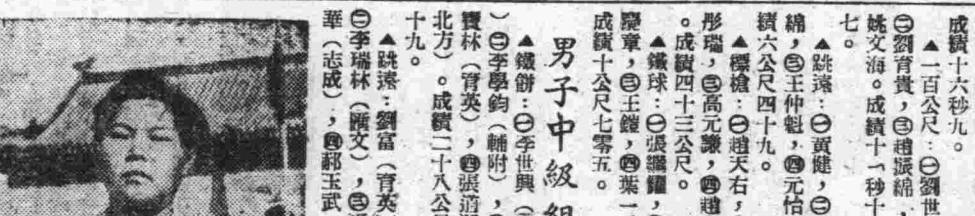 成績十六秒九。
▲一百公尺：㊀劉世
㊁劉育貴，㊂趙振綿，
姚文海。成績十一秒十
七。
▲跳遠：㊀黃健，㊁
綿，㊂王仲魁，㊃元怡
績六公尺四十九。
▲標槍：㊀趙天右，
彤瑞，㊂高元謙，㊃趙
。成績四十三公尺。
▲鐵球：㊀張繼
慶章，㊂王鎧，㊃葉一
成績十公尺七零五。
男子中級組
▲鐵餅：㊀李世興（
）㊁李學鈞（輔附），
寶林（育英），㊃張道
北方）。成績二十八公尺
十九。
▲跳遠：劉富（育英
㊁李瑞林（匯文），㊂
華（志成），㊃郝玉武